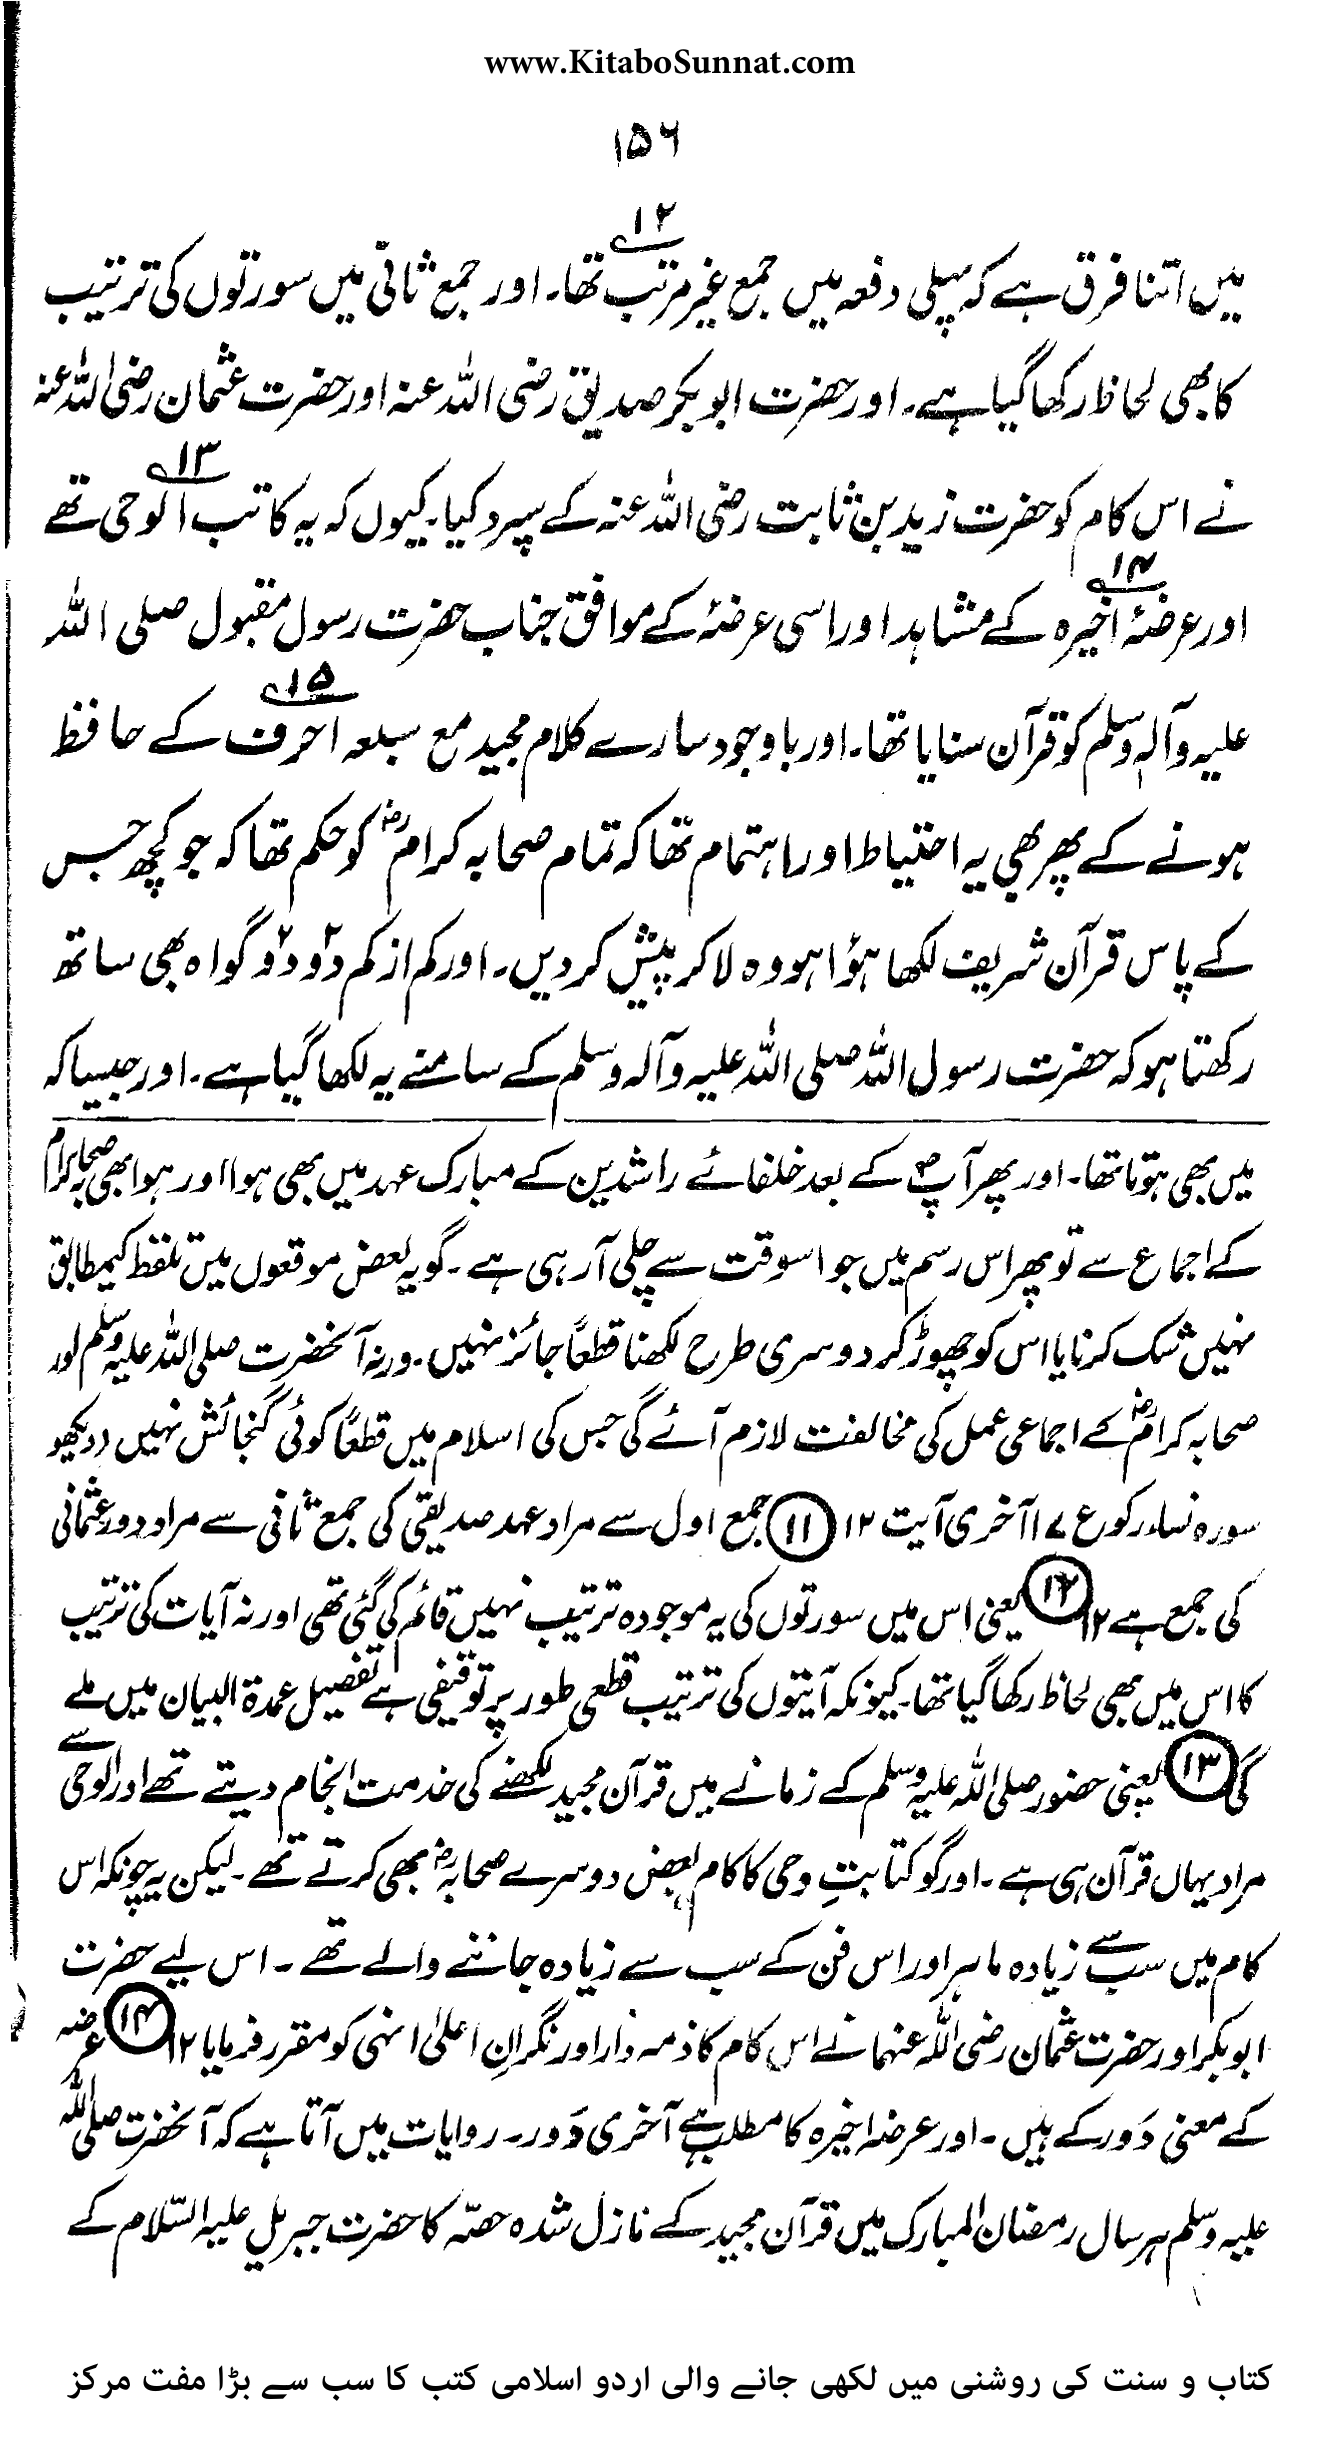 www.KitaboSunnat.com
۱۵۶
میں اتنا فرق ہے کہ پہلی دفعہ میں جمع غیر مرتب ۱۲ تھا۔ اور جمع ثانی میں سورتوں کی ترتیب
کا بھی لحاظ رکھا گیا ہے۔ اور حضرت ابوبکر صدیق رضی اللہ عنہ اور حضرت عثمان رضی اللہ عنہ
نے اس کام کو حضرت زید بن ثابت رضی اللہ عنہ کے سپرد کیا۔ کیوں کہ یہ کاتب الوحی ۱۳ تھے
اور عرضۂ اخیرہ ۱۴ کے مشاہد اور اسی عرضۂ کے موافق جناب حضرت رسول مقبول صلی اللہ
علیہ وآلہٖ وسلم کو قرآن سنایا تھا۔ اور باوجود سارے کلام مجید مع سبعہ احرف ۱۵ کے حافظ
ہونے کے پھر بھی یہ احتیاط اور اہتمام تھا کہ تمام صحابہ کرامؓ کو حکم تھا کہ جو کچھ جس
کے پاس قرآن شریف لکھا ہوٴا ہو وہ لا کر پیش کر دیں۔ اور کم از کم دو۲ دو۲ گواہ بھی ساتھ
رکھتا ہو کہ حضرت رسول اللہ صلی اللہ علیہ وآلہ وسلم کے سامنے یہ لکھا گیا ہے۔ اور جیسا کہ
میں بھی ہوتا تھا۔ اور پھر آپؐ کے بعد خلفائے راشدین کے مبارک عہد میں بھی ہوا اور ہوا بھی صحابہ کرام
کے اجماع سے تو پھر اس رسم میں جو اسوقت سے چلی آ رہی ہے۔ گو یہ بعض موقعوں میں تلفظ کیمطابق
نہیں شک کرنا یا اس کو چھوڑ کر دوسری طرح لکھنا قطعًا جائز نہیں۔ ورنہ آنحضرت صلی اللہ علیہ وسلم اور
صحابہ کرامؓ کے اجماعی عمل کی مخالفت لازم آئے گی جس کی اسلام میں قطعًا کوئی گنجائش نہیں (دیکھو
سورہ نساء رکوع ۱۷ آخری آیت ۱۲ ⑪ جمع اول سے مراد عہد صدیقی کی جمع ثانی سے مراد دور عثمانی
کی جمع ہے ۱۲ ⑫ یعنی اس میں سورتوں کی یہ موجودہ ترتیب نہیں قائم کی گئی تھی اور نہ آیات کی ترتیب
کا اس میں بھی لحاظ رکھا گیا تھا۔ کیونکہ آیتوں کی ترتیب قطعی طور پر توقیفی ہے تفصیل عمدۃ البیان میں ملے
گی ⑬ یعنی حضور صلی اللہ علیہ وسلم کے زمانے میں قرآن مجید لکھنے کی خدمت انجام دیتے تھے اور الوحی سے
مراد یہاں قرآن ہی ہے۔ اور گو کتابتِ وحی کا کام بعض دوسرے صحابہؓ بھی کرتے تھے۔ لیکن یہ چونکہ اس
کام میں سب سے زیادہ ماہر اور اس فن کے سب سے زیادہ جاننے والے تھے۔ اس لیے حضرت
ابوبکر اور حضرت عثمان رضی اللہ عنہما نے اس کام کا ذمہ دار اور نگرانِ اعلیٰ انہی کو مقرر فرمایا ۱۲ ⑭ عرضہ
کے معنی دَور کے ہیں۔ اور عرضہ اخیرہ کا مطلب ہے آخری دَور۔ روایات میں آتا ہے کہ آنحضرت صلی اللہ
علیہ وسلم ہر سال رمضان المبارک میں قرآن مجید کے نازل شدہ حصّہ کا حضرت جبریل علیہ السّلام کے
کتاب و سنت کی روشنی میں لکھی جانے والی اردو اسلامی کتب کا سب سے بڑا مفت مرکز